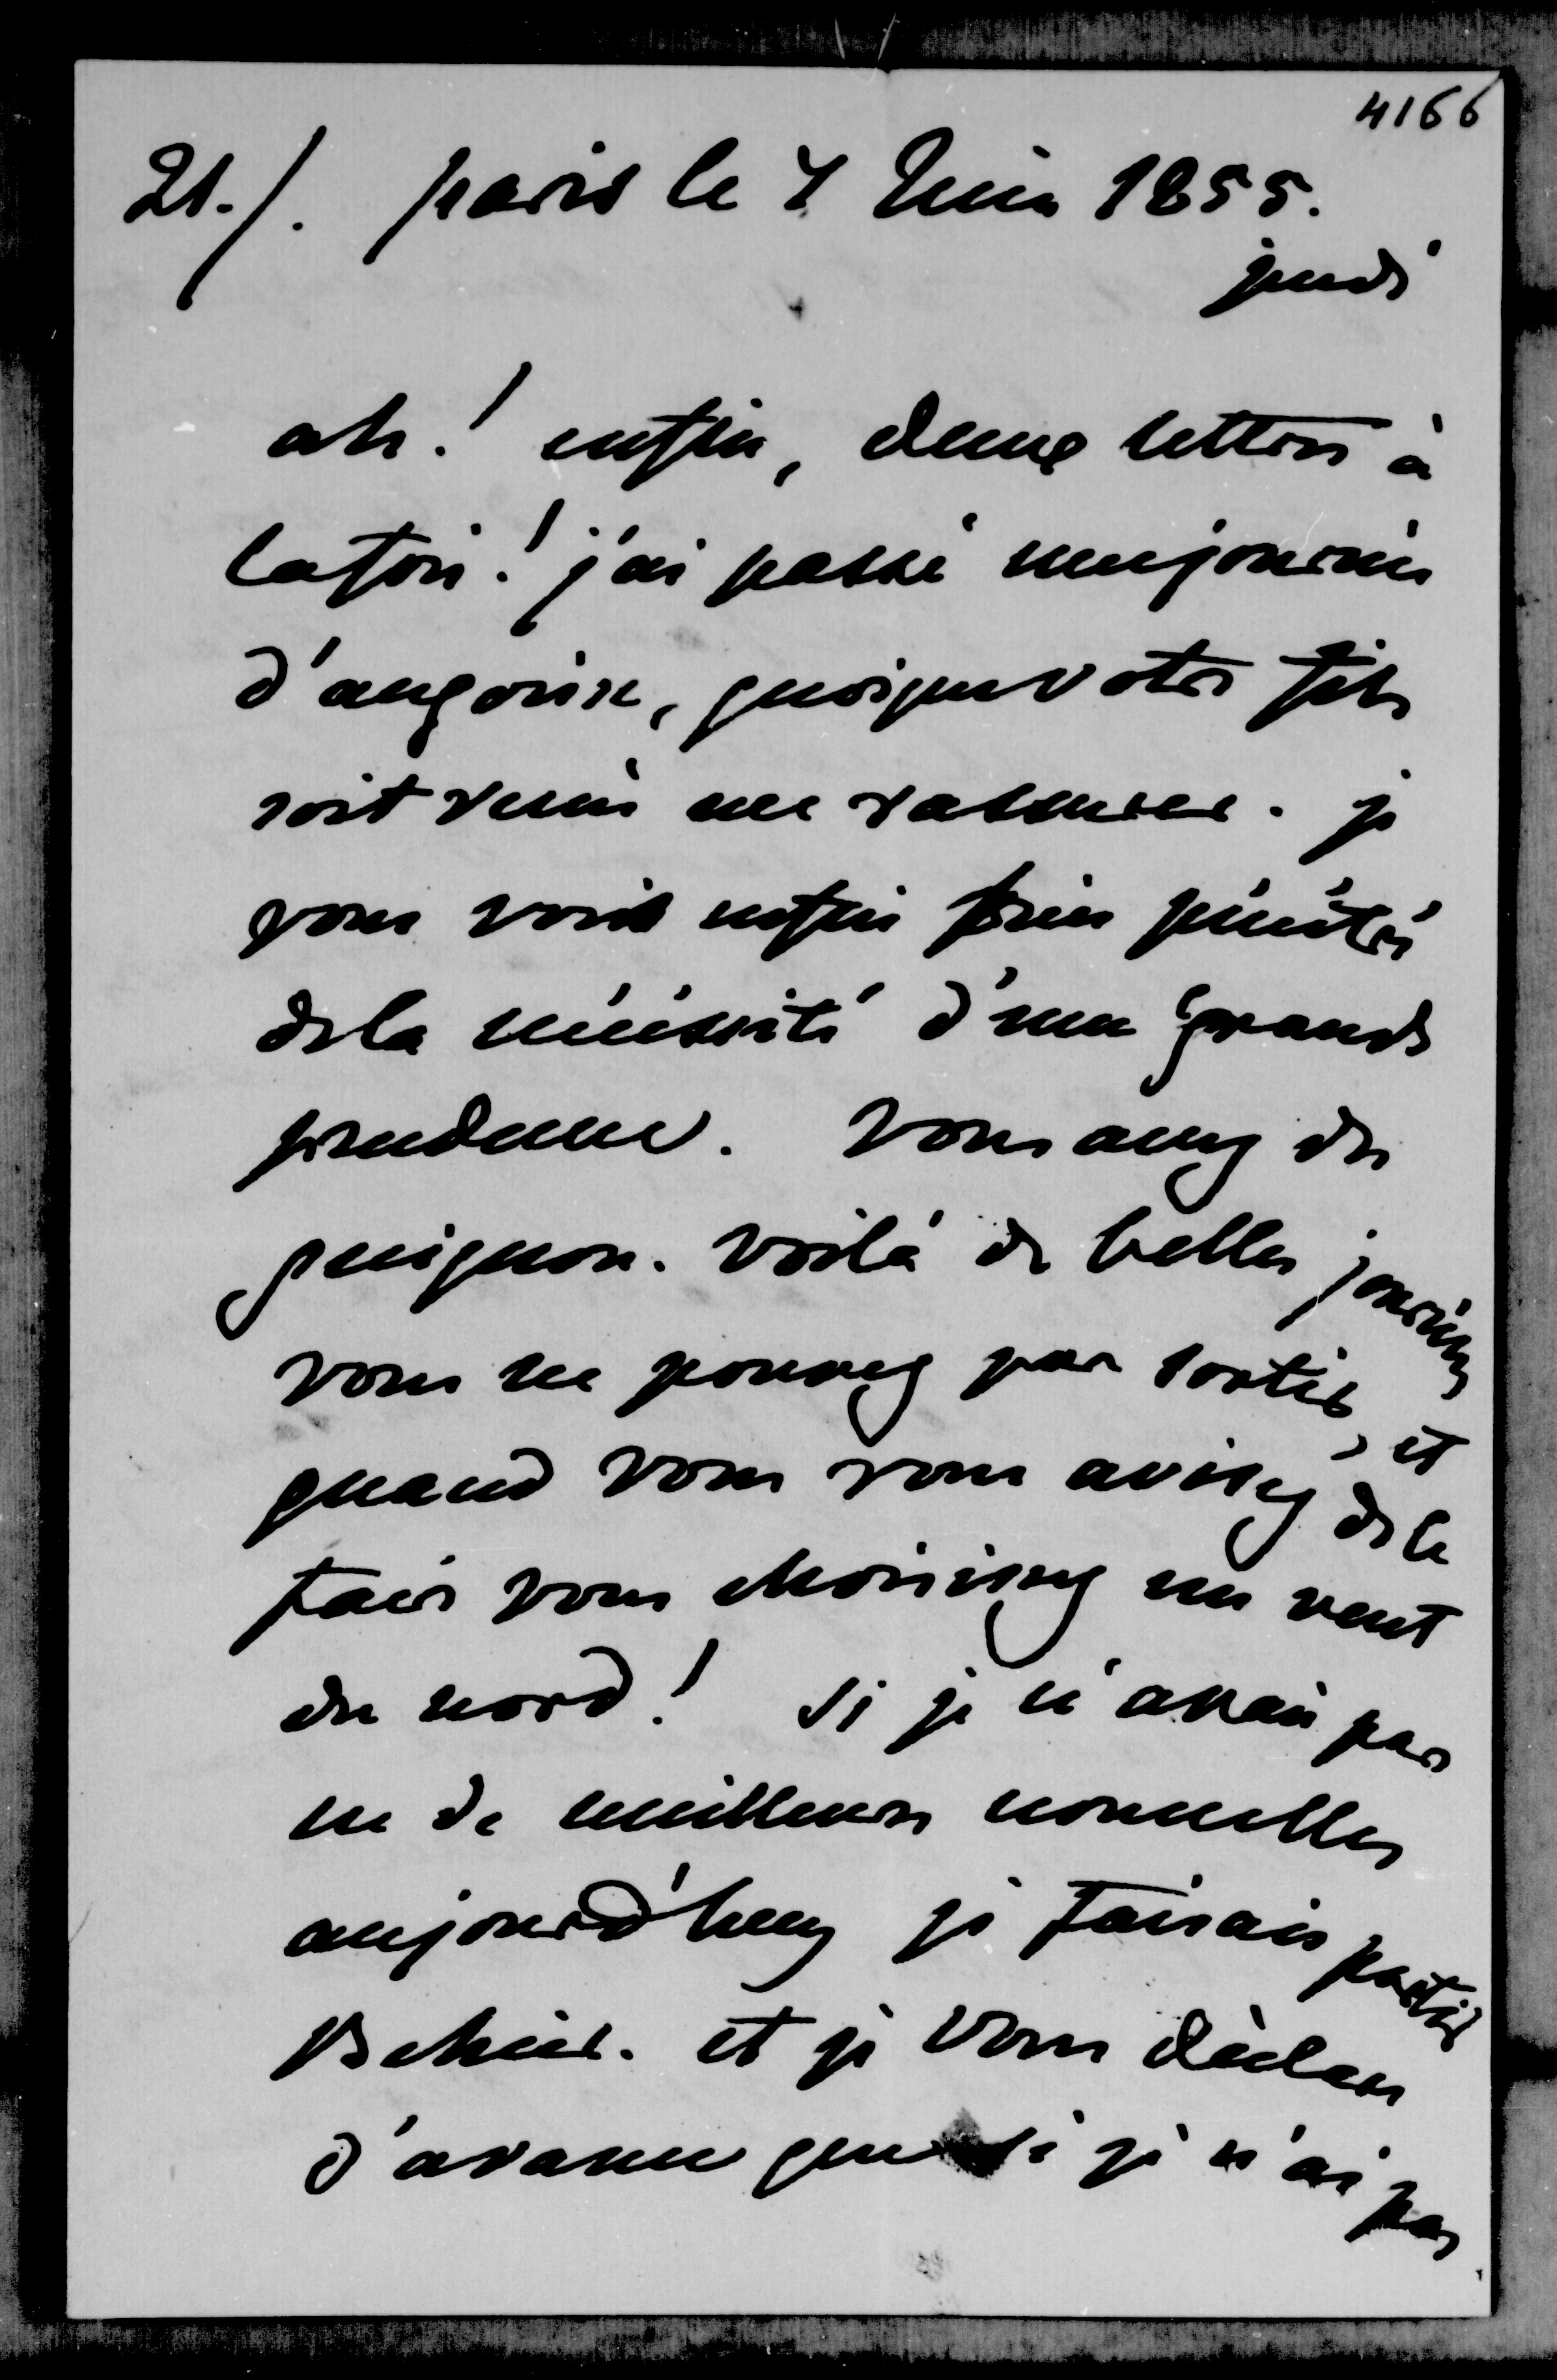 4166
21./. paris le 7 Juin 1855.
jeudi
ah ! enfin, deux lettres à
lafois ! j'ai passé une journée
d'angoisse, quoique votre fils
soit venu me rassurer. je
vous vois enfin bien pénétré
de la nécéssité d'une grande
prudence. Vous avez du
guignon. Voilà de belles journées
vous ne pouvez pas sortir, et
quand vous vous avisez de le
faire vous choisissez un vent
du nord ! Si je n'avais pas
eu de meilleures nouvelles
aujourd'huy je faisais partir
Béhier. et je vous déclare
d'avance que si je n'ai pas